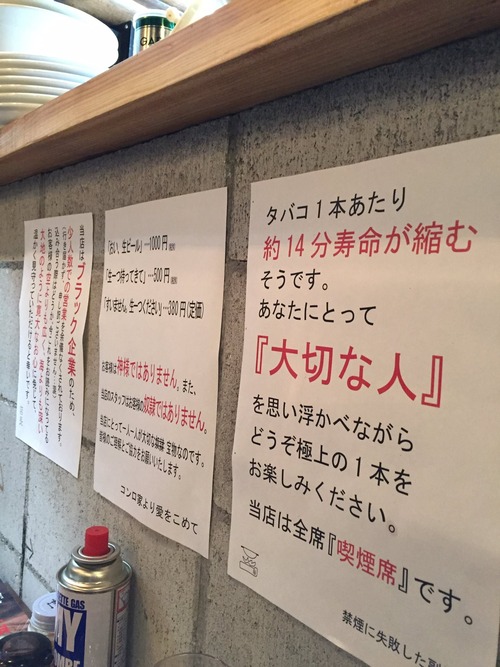 当店はブラック企業のため、
少人数での営業を余儀なくされております。
大地のように寛大なお心をもって、
温かく見守っていただけると幸いです。
店長
「おい、生ビール」…1000円
「生一つ持ってきて」…500円
「すいません。生一つください」…380円(定価)
お客様は神様ではありません。また、
当店のスタッフはお客様の奴隷ではありません。
皆様のご理解とご協力をお願いいたします。
コンロ家より愛をこめて
タバコ1本あたり
約14分寿命が縮む
そうです。
あなたにとって
『大切な人』
を思い浮かべながら
どうぞ極上の1本を
お楽しみください。
当店は全席『喫煙席』です。
禁煙に失敗した
GAS